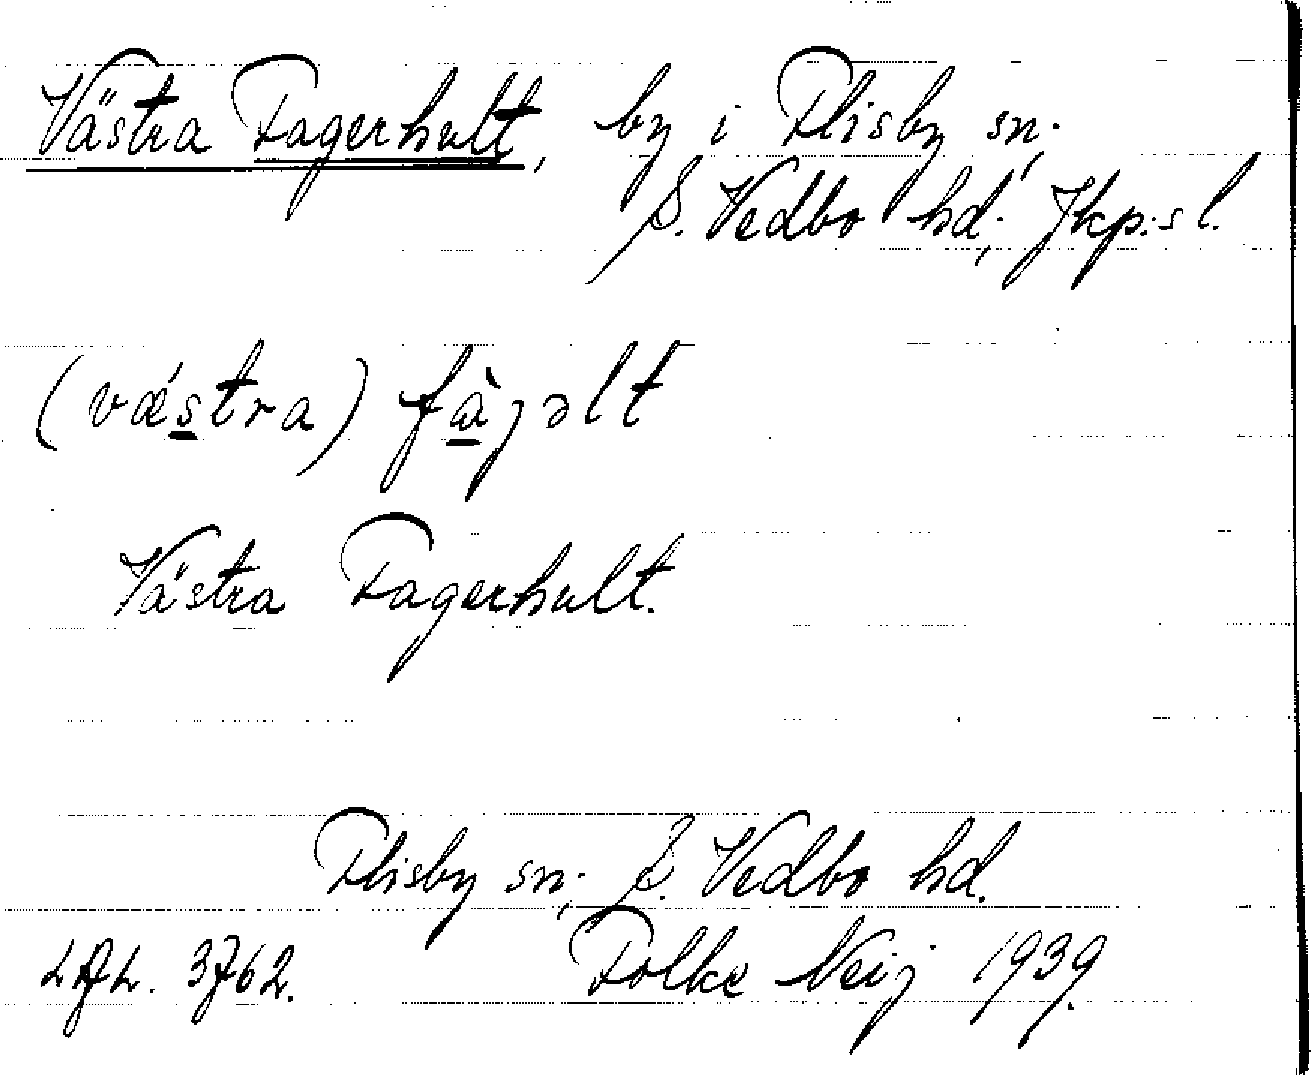 Västra Fagerhult, by i Flisby sn.
S. Vedbo hd., Jkp:s l.
(væ̀stra) fàjəlt
Västra Fagerhult.
Flisby sn., S. Vedbo hd.
3762. Folke Neij 1939.